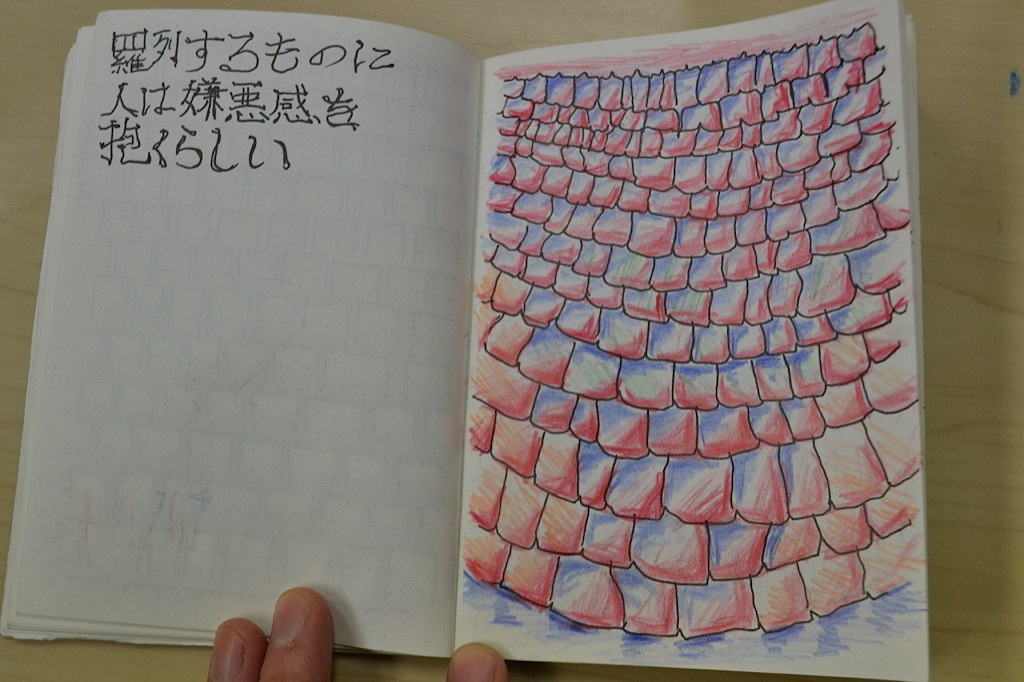 羅列するものに
人は嫌悪感を
抱くらしい